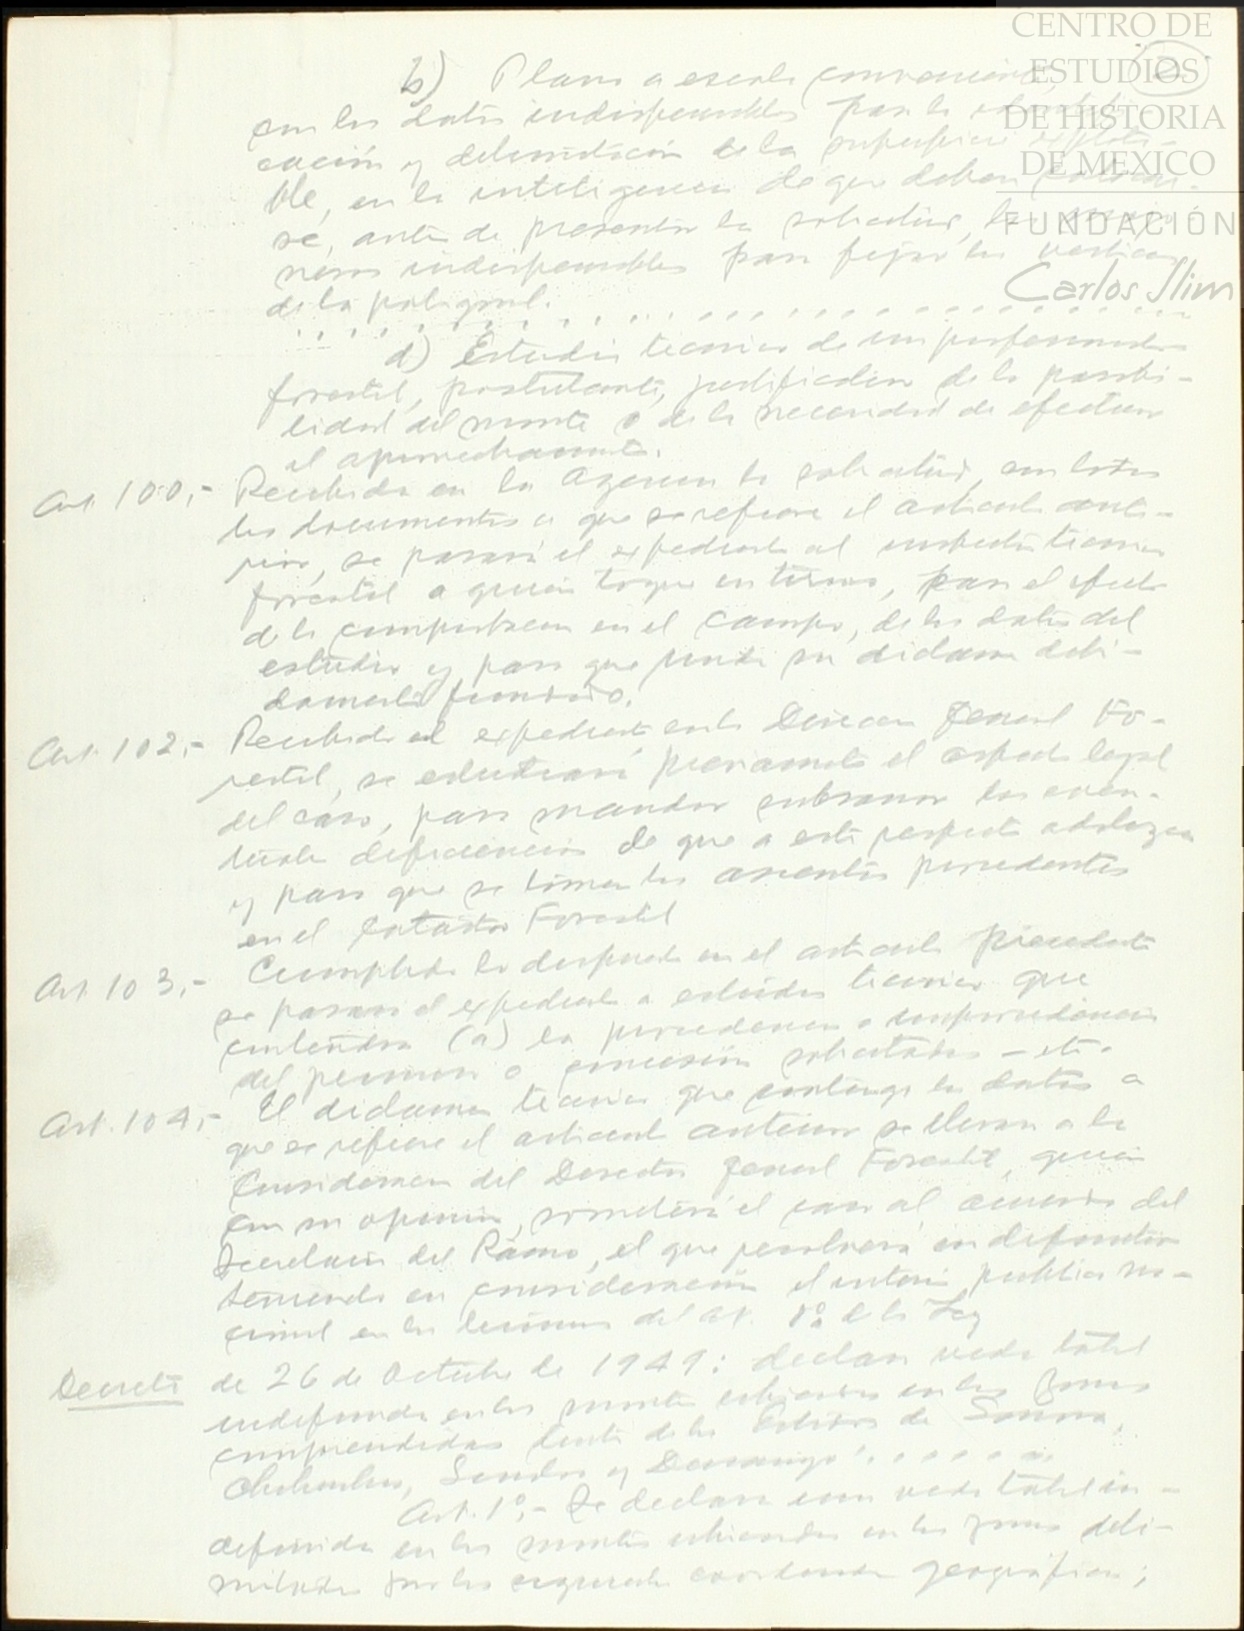 CENTRO DE
ESTUDIOS
DE HISTORIA
DE MEXICO
FUNDACIÓN
Carlos Slim
b) Plano a escala conveniente,
con los datos indispensables para la
cación y delimitación de la superficie explota-
ble, en la inteligencia de que deben colocar-
se, antes de presentar la solicitud,
indispensables para fijar los vertices
de la poligonal.
. . . . . . . . . . . . . . . . . . . . . . . .
d) Estudio tecnico de un profesionista
forestal, postulante, justificativo de la posibi-
lidad del monte o de la necesidad de efectuar
el aprovechamiento.
Art. 100.- Recibida en la Agencia la solicitud, con todos
los documentos a que se refiere el articulo ante-
rior, se pasará el expediente al inspector tecnico
forestal a quien toque en turno, para el efecto
de la comprobacion en el campo, de los datos del
estudio y para que rinda su dictamen debi-
damente fundado.
Art. 102.- Recibido el expediente en la Direccion General Fo-
restal, se estudiará previamente el aspecto legal
del caso, para mandar subsanar las even-
tuales deficiencias de que a este respecto adolezca
y para que se tomen los asientos procedentes
en el Catastro Forestal
Art 103.- Cumplido lo dispuesto en el articulo precedente
se pasará el expediente a estudio tecnico que
contendrá (a) la procedencia o improcedencia
del permiso o concesión solicitados - etc.
Art. 104.- El dictamen tecnico que contenga los datos a
que se refiere el articulo anterior se llevará a la
Consideracion del Director General Forestal, quien
con su opinion, someterá el caso al acuerdo del
Secretario del Ramo, el que resolverá en definitiva
teniendo en consideración el interés publico na-
cional en los terminos del art. 1º de la Ley
Decreto de 26 de Octubre de 1949: declara veda total
indefinida en los montes ubicados en las zonas
comprendidas dentro de los Estados de Sonora,
Chihuahua, Sinaloa y Durango. . . . . . .
Art. 1º.- Se declara una veda total in-
definida en los montes ubicados en las zonas deli-
mitadas por las siguientes coordenadas geograficas;